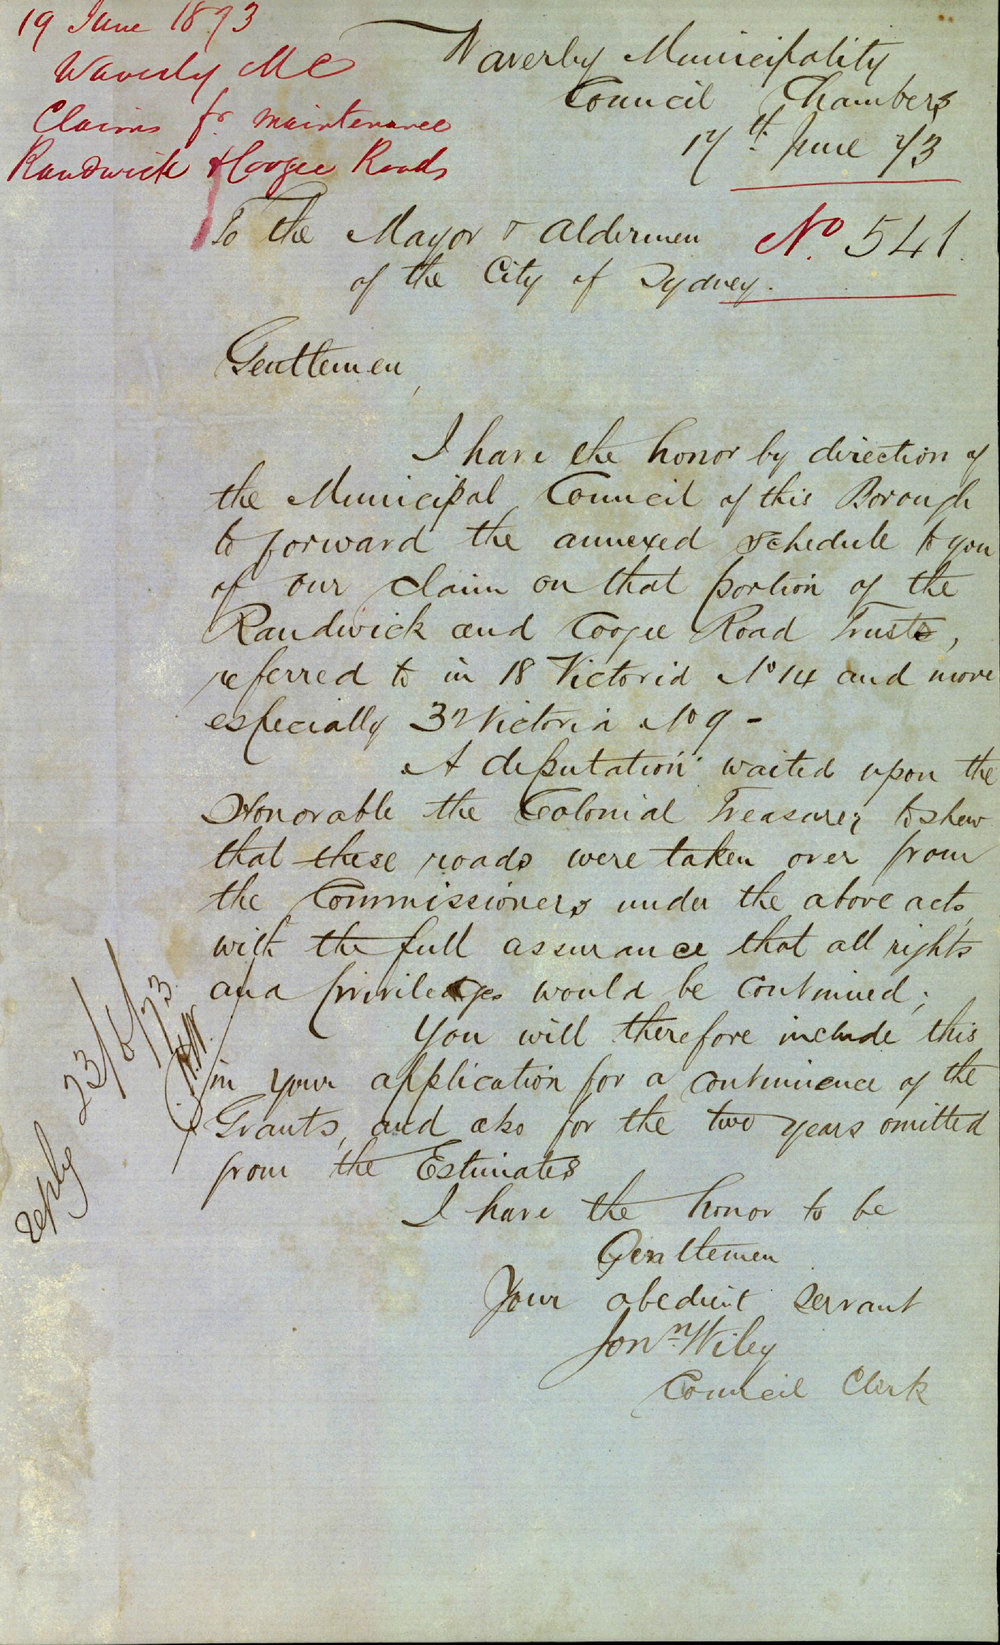 19 June 1873
Waverly MC
Claims for maintenance
Randwick & Coogee Roads
Waverley Municipality
Council Chambers
17th June 73
To the Mayor & Aldermen
of the City of Sydney.
No. 541.
Gentlemen,
I have the honor by direction of
the Municipal Council of this Borough
to forward the annexed schedule to you
of our claim on that portion of the
Randwick and Coogee Road Trusts,
referred to in 18 Victoria No 14 and more
especially 32 Victoria No 9 -
A deputation waited upon the
Honorable the Colonial Treasurer to shew
that these roads were taken over from
the Commissioners under the above acts,
with the full assurance that all rights
and privileges would be continued;
You will therefore include this
in your application for a continuence of the
Grants, and also for the two years omitted
from the Estimates
I have the honor to be
Gentlemen
Your obedient Servant
Jonn Wiley
Council Clerk
reply 23/6/73